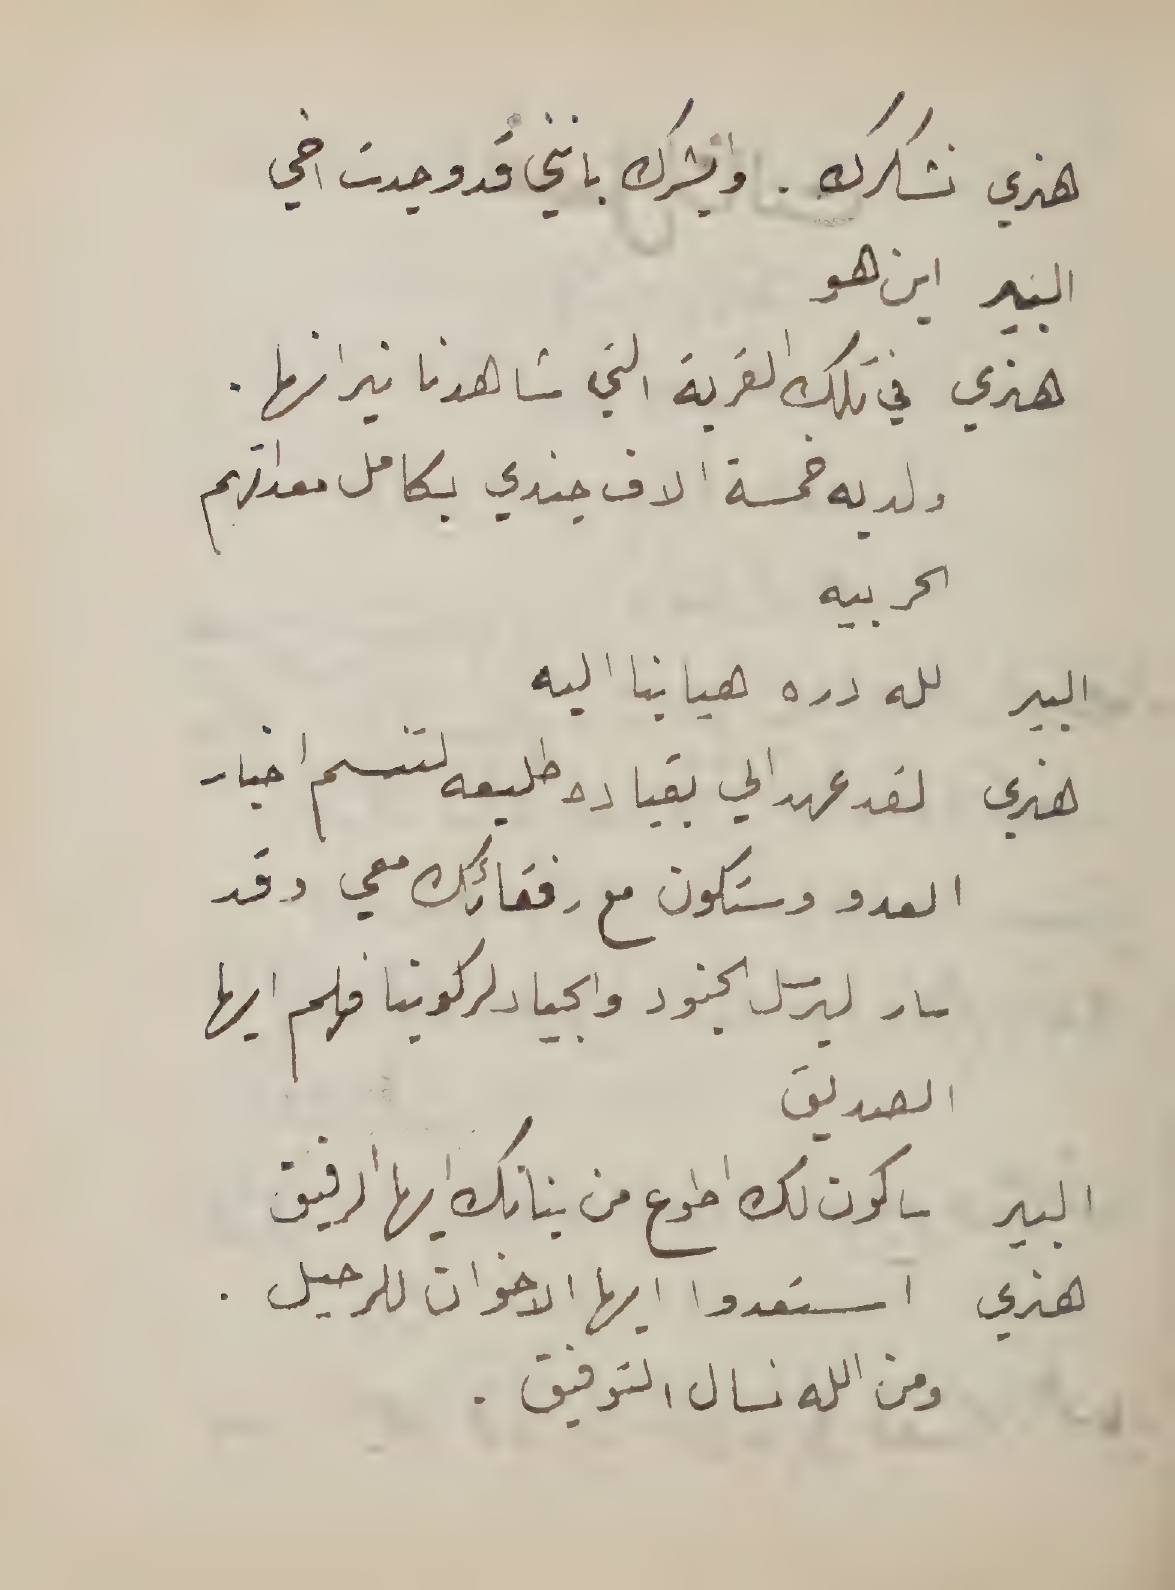 هنري نشكرك . وابشرك بانني قد وجدت اخي
البير اين هو
هنري في تلك القرية التي شاهدنا نيرانها .
ولديه خمسة الاف جندي بكامل معداتهم
الحربيه
البير لله دره هيا بنا اليه
هنري لقد عهد الي بقياده طليعه لتنسم اخبار
العدو وستكون مع رفقائك معي وقد
سار ليرسل الجنود والجياد لركوبنا فهلم ايها
الصديق
البير ساكون لك اطوع من بنانك ايها الرفيق
هنري استعدوا ايها الاخوان للرحيل .
ومن الله نسال التوفيق .